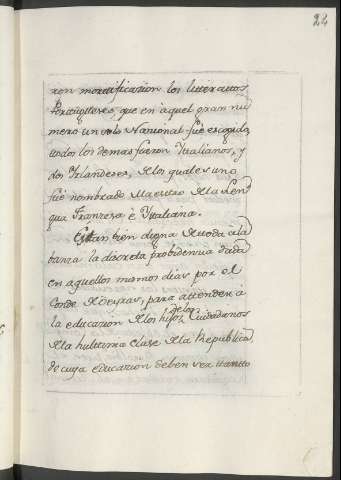 24
ron mortificasion los litteratos
Portugueses, que en aquel gran nu
mero un solo Nanional fue escogido,
todos los demas fueron Yttalianos, y
dos Yrlandeses, de los quales uno
fue nombrado Maestro de la Len
gua Franzesa è Yttaliana.
Es tan bien digna de toda ala
banza la discreta probidensia dada
en aquellos mismos dias por el
Conde de Oeyras, para attender à
la educasion de los hijos de los Ciudadanos
de la hulttima clase de la Republica,
de cuya educasion deben ser ttantto